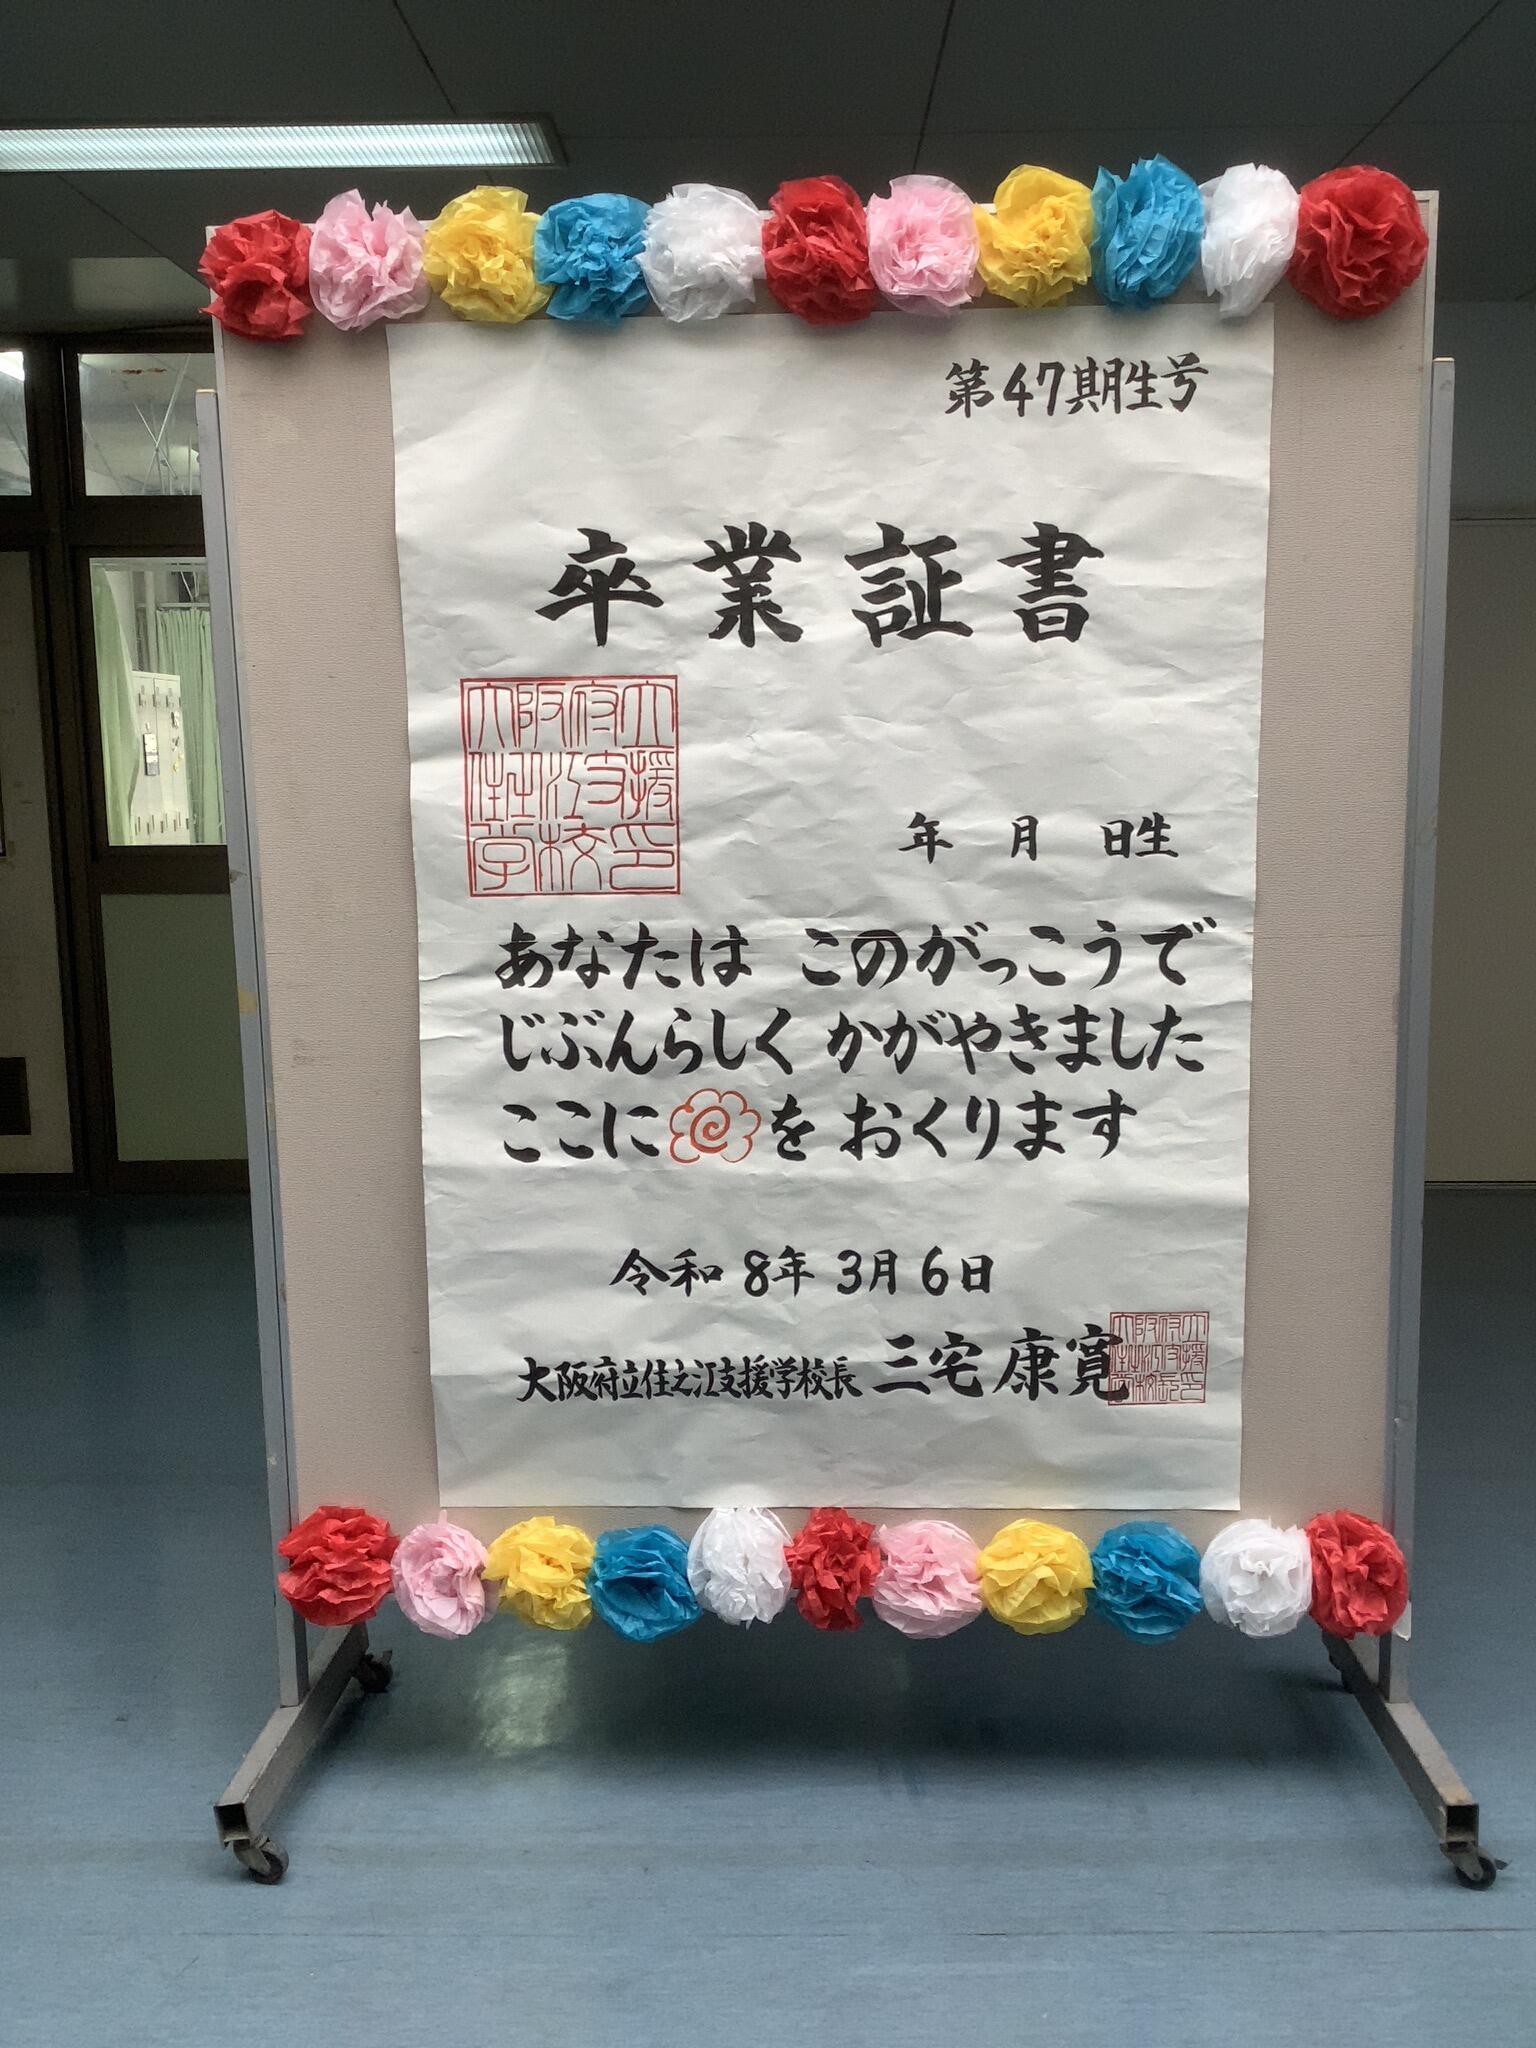 第47期生号
卒業証書
大阪府立
住之江支援
学校印
年 月 日生
あなたは このがっこうで
じぶんらしく かがやきました
ここに を おくります
令和 8年 3月 6日
大阪府立住之江支援学校長 三宅 康寛